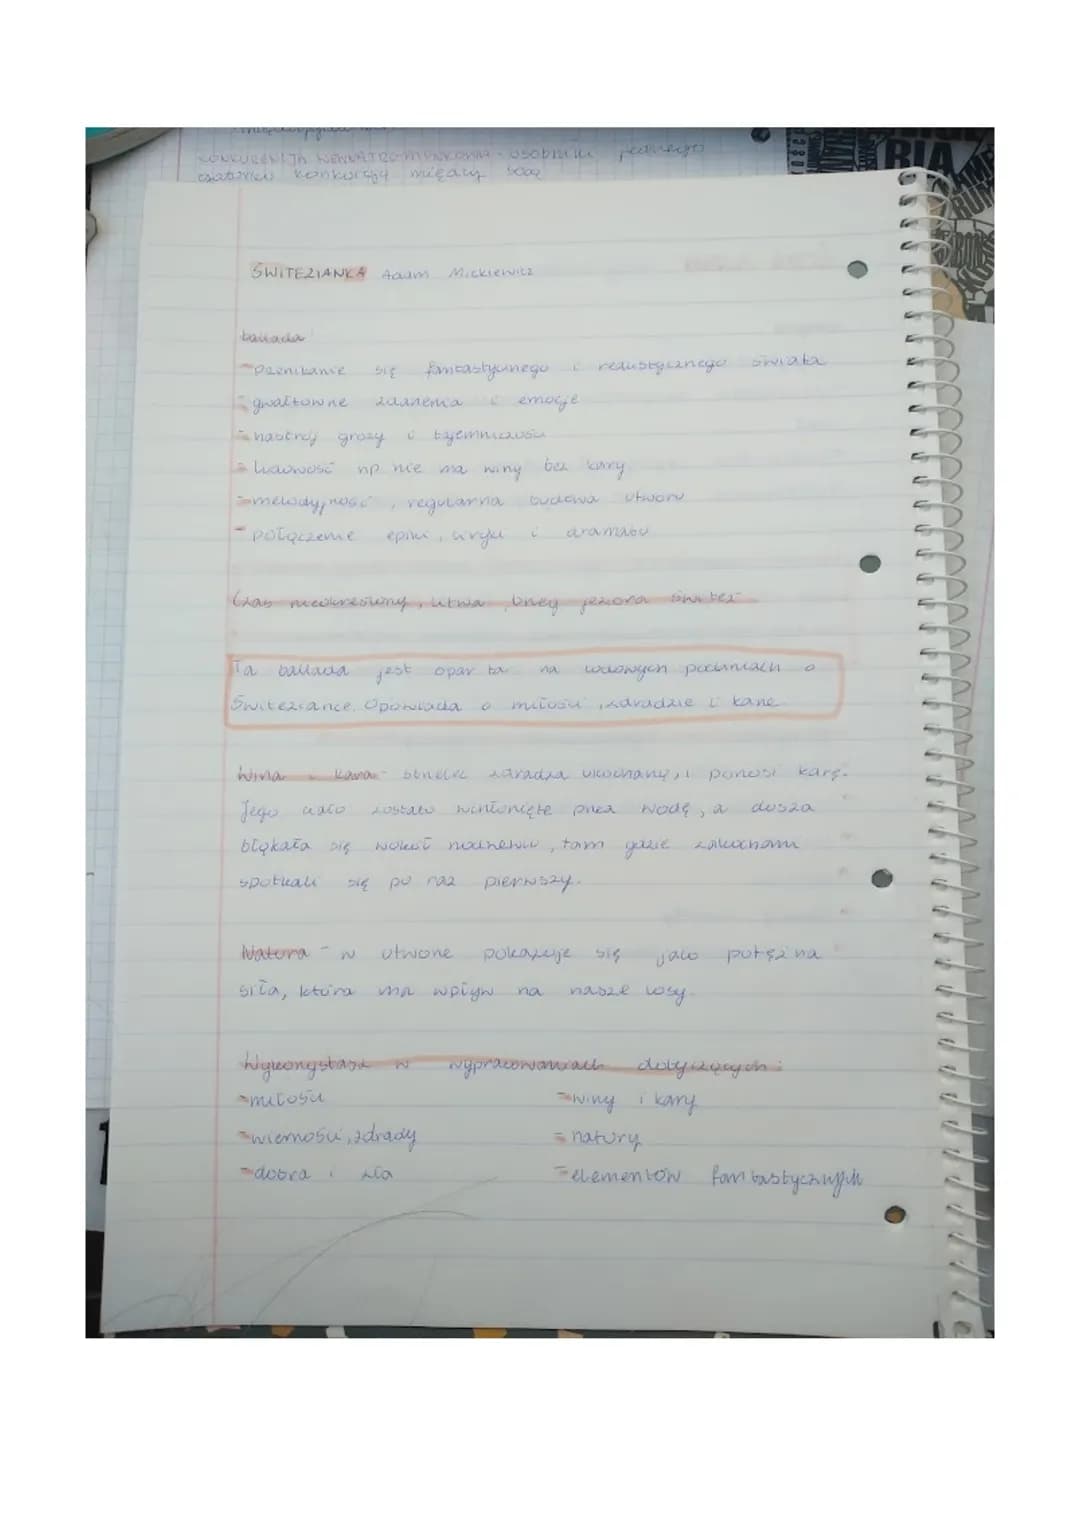 KONKURENCJA WEWNĄTRZGATUNKOWA - osobniki jednego
gatunku konkurują między sobą
RIA
ŚWITEZIANKA Adam Mickiewicz
ballada
- przenikanie się fantastycznego i realistycznego świata
- gwałtowne zdarzenia i emocje
- nastrój grozy i tajemniczości
- ludowość np nie ma winy bez kary
- melodyjność, regularna budowa utworu
- połączenie epiki, liryki i dramatu
Czas nieokreślony, Litwa, brzeg jeziora Świteź
Ta ballada jest oparta na ludowych podaniach o
Świteziance. Opowiada o miłości, zdradzie i karze
Wina i kara - strzelec zdradza ukochaną, i ponosi karę.
Jego ciało zostało wchłonięte przez wodę, a dusza
błąkała się wokół modrzewiu, tam gdzie zakochani
spotkali się po raz pierwszy.
Natura - w utworze pokazuje się jako potężna
siła, która ma wpływ na nasze losy.
Wykorzystasz w wypracowaniach dotyczących:
- miłości - winy i kary
- wierności, zdrady - natury
- dobra i zła - elementów fantastycznych